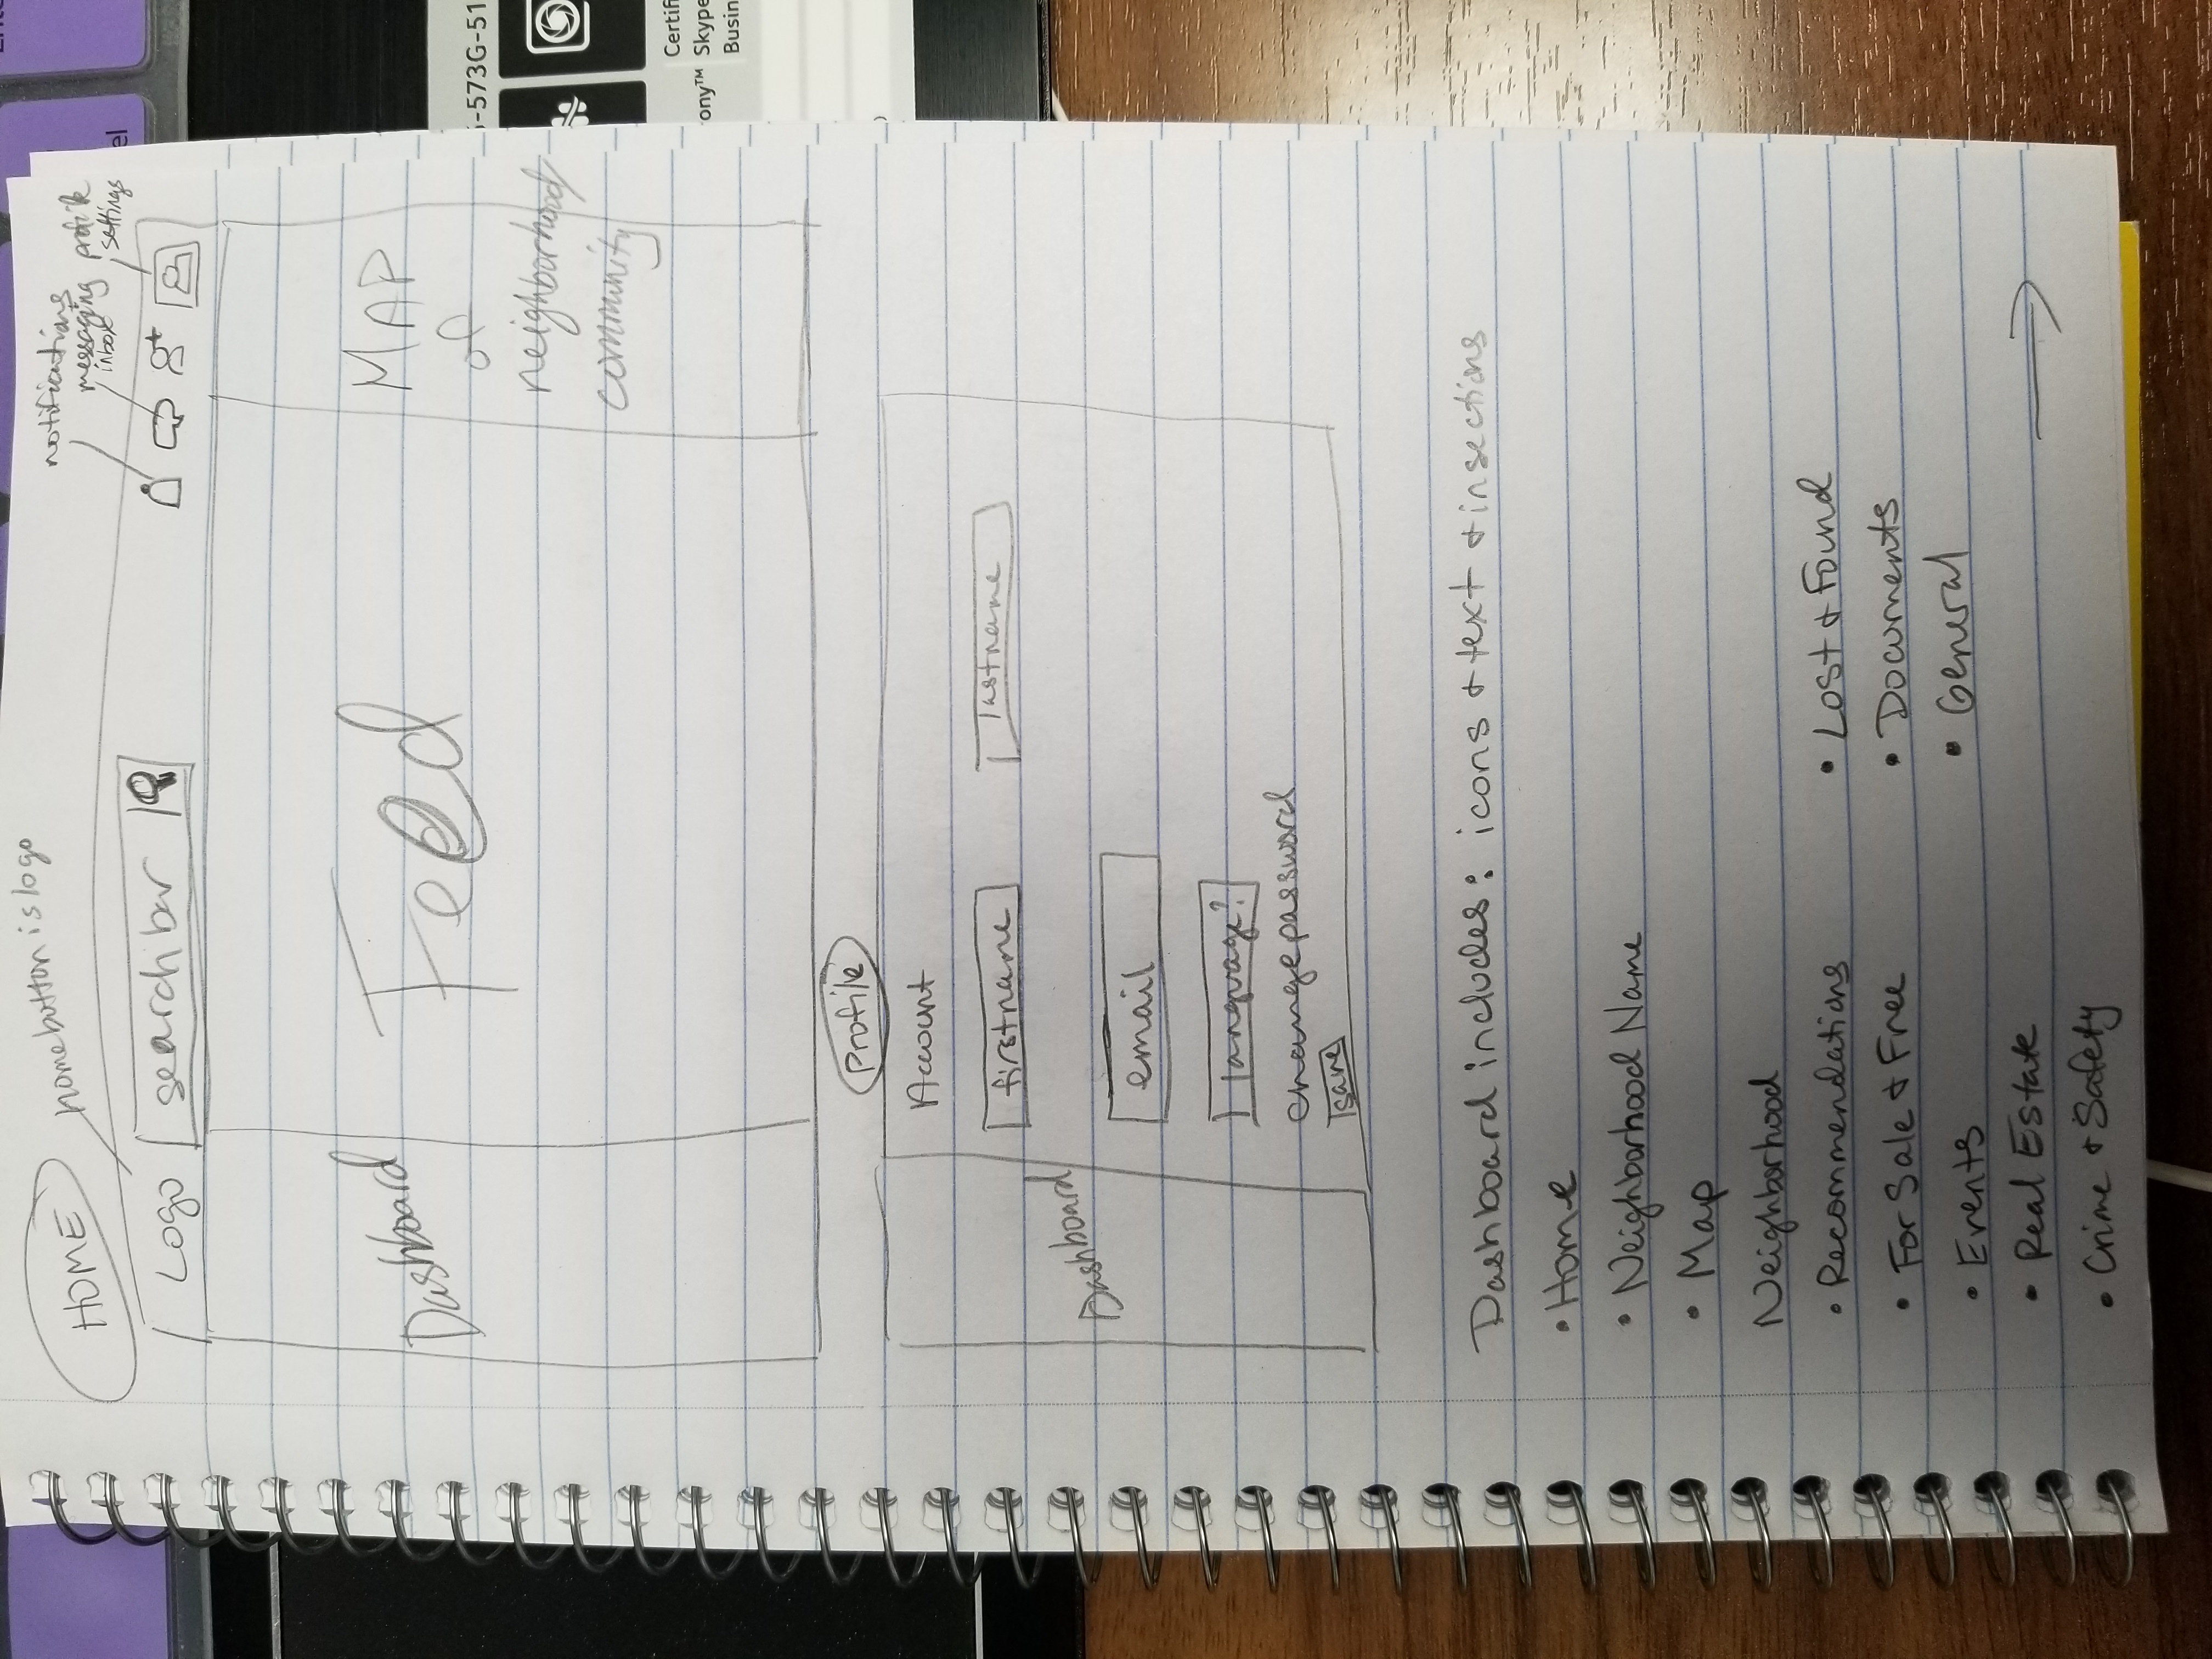 HOME
home button is logo
notifications
messaging inbox
profile settings
el
Logo
search bar
Dashboard
Feed
MAP
of
neighborhood/
community
-573G-51
Certifi
ony™ Skype
Busin
Profile
Account
firstname
lastname
Dashboard
email
language?
change password
save
Dashboard includes: icons & text & in sections
• Home
• Neighborhood Name
• Map
Neighborhood
• Recommendations
• For Sale & Free
• Events
• Real Estate
• Crime & Safety
• Lost & Found
• Documents
• General